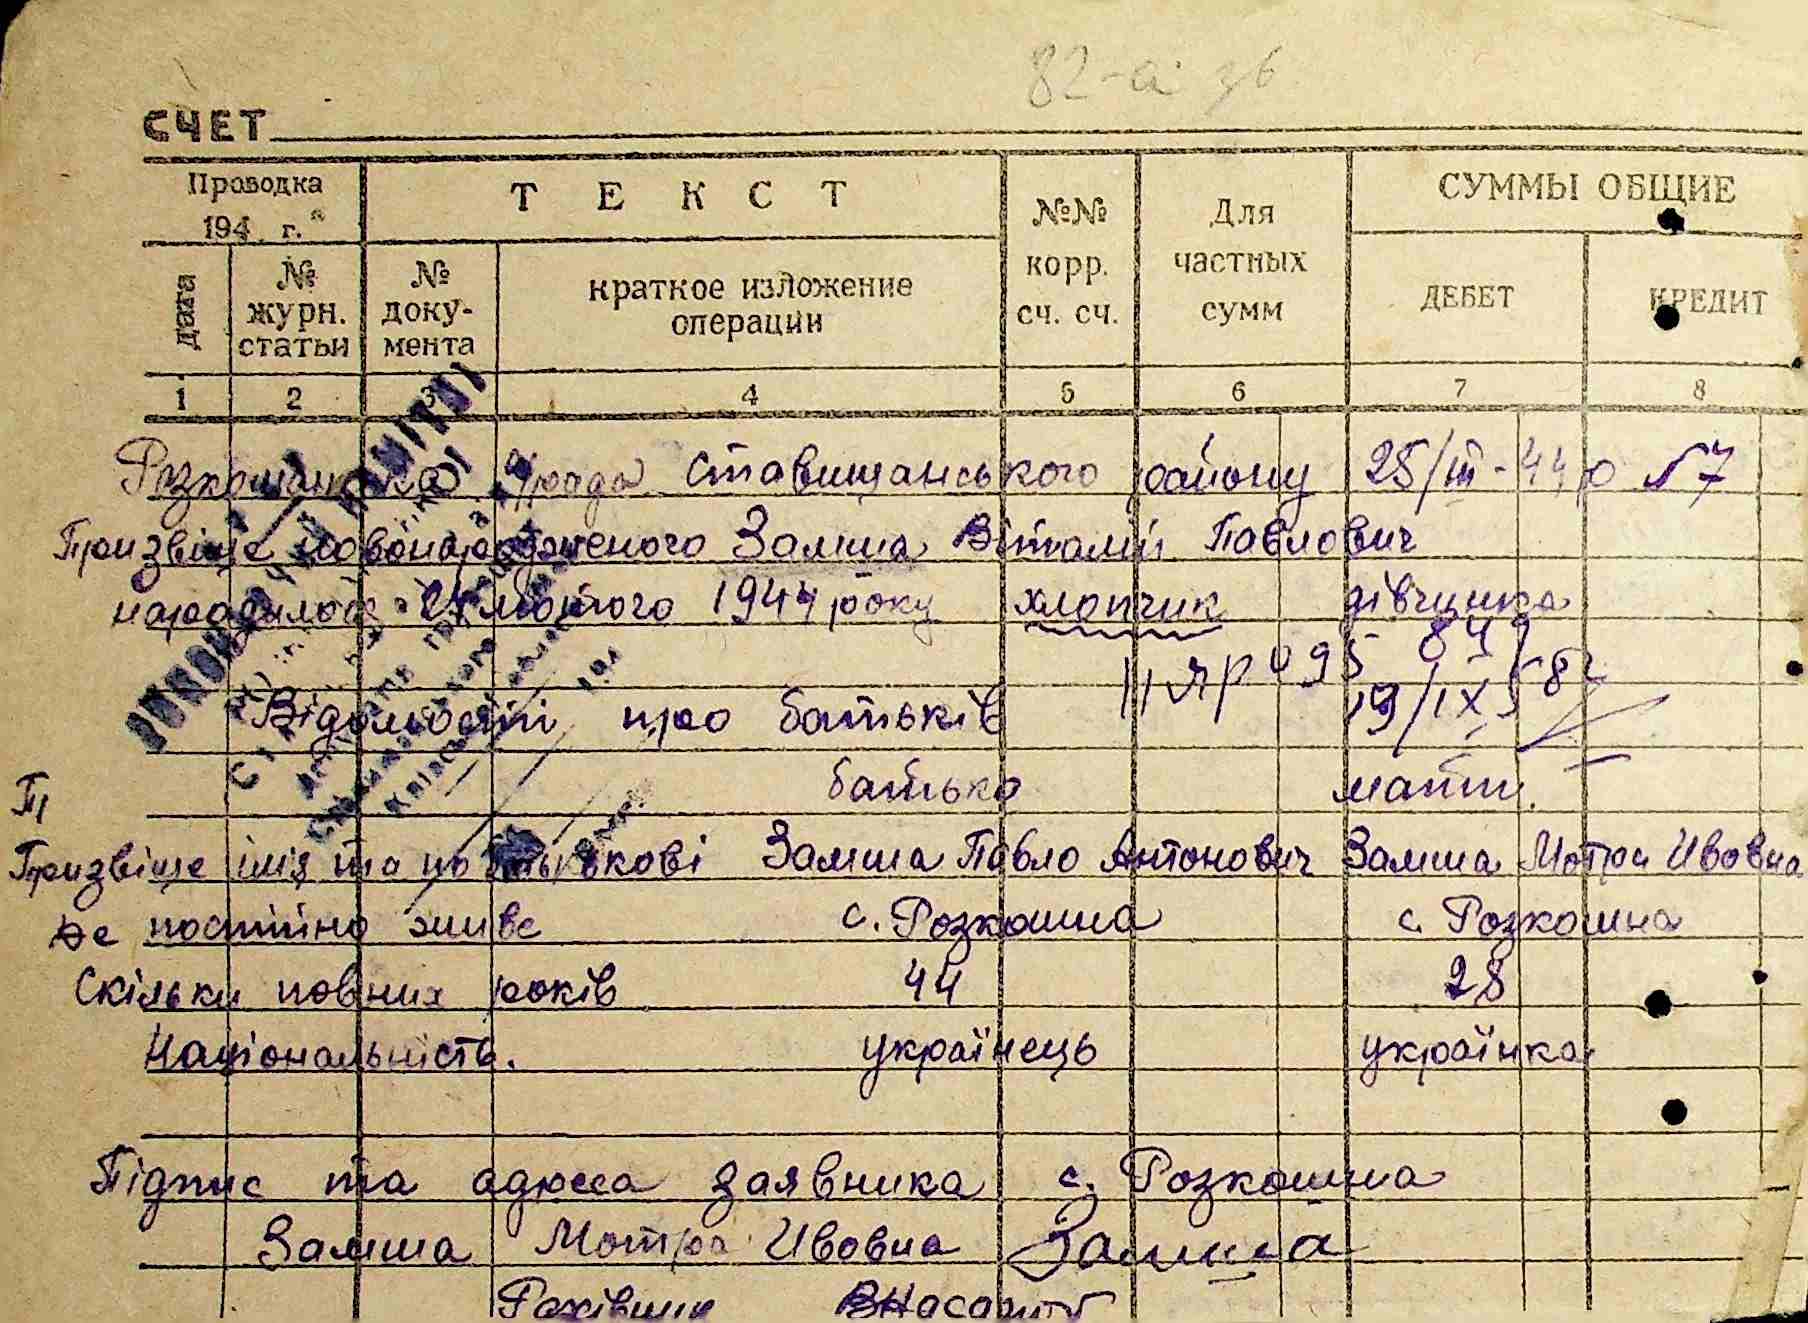 82-а зв
СЧЕТ
Проводка
194 г.
ТЕКСТ
№№
корр.
сч. сч.
Для
частных
сумм
СУММЫ ОБЩИЕ
дата
№
журн.
статьи
№
доку-
мента
краткое изложение
операции
ДЕБЕТ
КРЕДИТ
1 2 3 4 5 6 7 8
Розкошанська с/рада Ставищанського району 25/III-44 р №7
Призвіще новонародженого Замша Віталій Павлович
народилось 24 лютого 1944 року хлопчик дівчинка
II ЯР 095 849
19/IX 58г
Відомості про батьків
батько мати.
Пр
Призвіще імя та по батькові Замша Павло Антонович Замша Мотря Ивовна
Де постійно живе с. Розкошна с. Розкошна
Скільки повних років 44 28
Національність. українець українка.
Підпис та адреса заявника с. Розкошна
Замша Мотря Ивовна Замша
Рахівник